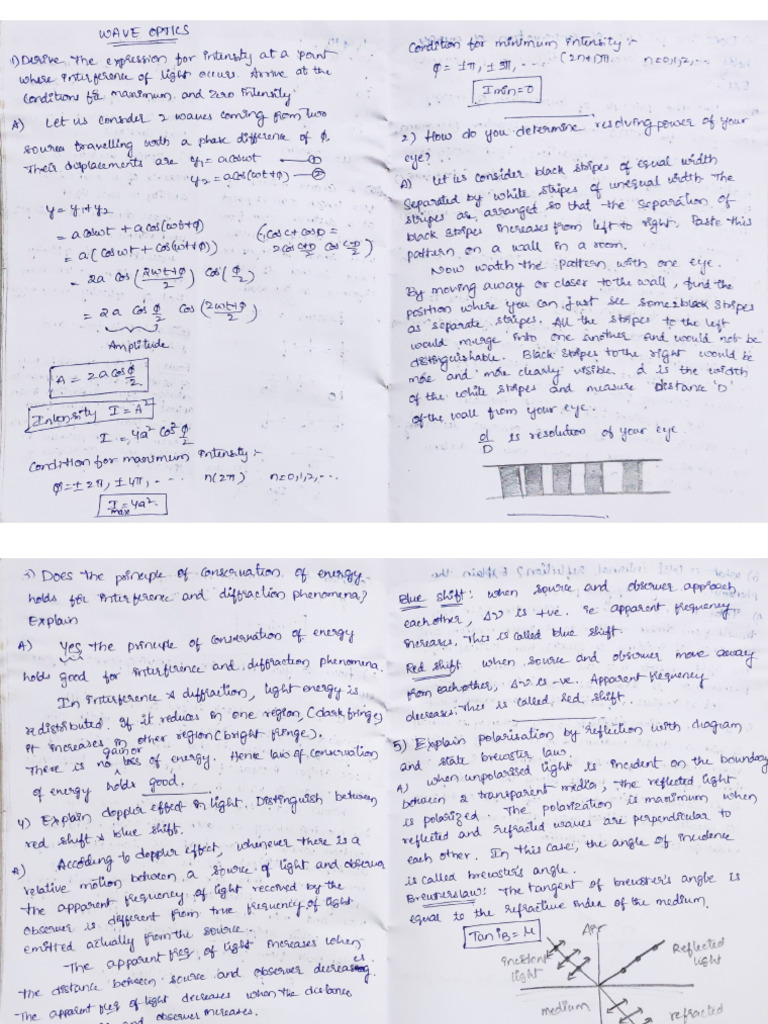 WAVE OPTICS
1) Derive the expression for intensity at a point
where interference of light occurs. Arrive at the
conditions for maximum and zero intensity.
A) Let us consider 2 waves coming from two
sources travelling with a phase difference of φ.
Their displacements are y₁ = a cosωt —①
y₂ = a cos(ωt+φ) —②
y = y₁+y₂
= a cosωt + a cos(ωt+φ)
(∵ cosC + cosD =
2cos C+D/2 cos C-D/2)
= a(cosωt + cos(ωt+φ))
= 2a cos(2ωt+φ/2) cos(φ/2)
= 2a cos φ/2 cos(2ωt+φ/2)
Amplitude
A = 2a cos φ/2
Intensity I = A²
I = 4a² cos² φ/2
Condition for maximum intensity :-
φ = ± 2π, ± 4π, - - - n(2π) n=0,1,2,...
I max = 4a²
Condition for minimum intensity :-
φ = ±π, ± 3π, ... (2n+1)π n=0,1,2,...
I min = 0
2) How do you determine resolving power of your
eye?
A) Let us consider black stripes of equal width
separated by white stripes of unequal width. The
stripes are arranged so that the separation of
black stripes increases from left to right. Paste this
pattern on a wall in a room.
Now watch the pattern with one eye.
By moving away or closer to the wall, find the
position where you can just see some black stripes
as separate stripes. All the stripes to the left
would merge into one another and would not be
distinguishable. Black stripes to the right would be
more and more clearly visible. d is the width
of the white stripes and measure distance 'D'
of the wall from your eye.
d/D is resolution of your eye
3) Does the principle of conservation of energy
holds for interference and diffraction phenomena?
Explain
A) Yes the principle of conservation of energy
holds good for interference and diffraction phenomina.
In interference & diffraction, light energy is
redistributed. If it reduces in one region, (dark fringe)
it increases in other region (bright fringe).
There is no gain or loss of energy. Hence law of conservation
of energy holds good.
4) Explain doppler effect in light. Distinguish between
red shift & blue shift.
A) According to doppler effect, whenever there is a
relative motion between a source of light and observer
the apparent frequency of light received by the
observer is different from true frequency of light
emitted actually from the source.
The apparent freq of light increases when
the distance between source and observer is decreasing.
The apparent freq of light decreases when the distance
and observer increases.
Blue shift: when source and observer approach
each other, Δν is +ve. ie apparent frequency
increases. This is called blue shift.
Red shift when source and observer move away
from each other, Δν is -ve. Apparent frequency
decreases. This is called red shift.
5) Explain polarisation by reflection with diagram
and state brewster law.
A) when unpolarised light is incident on the boundary
between 2 transparent media, the reflected light
is polarized. The polarization is maximum when
reflected and refracted waves are perpendicular to
each other. In this case, the angle of incidence
is called brewster's angle.
Brewsters law: The tangent of brewster's angle is
equal to the refractive index of the medium.
Tan iB = μ
Incident
light
Reflected
light
medium
refracted